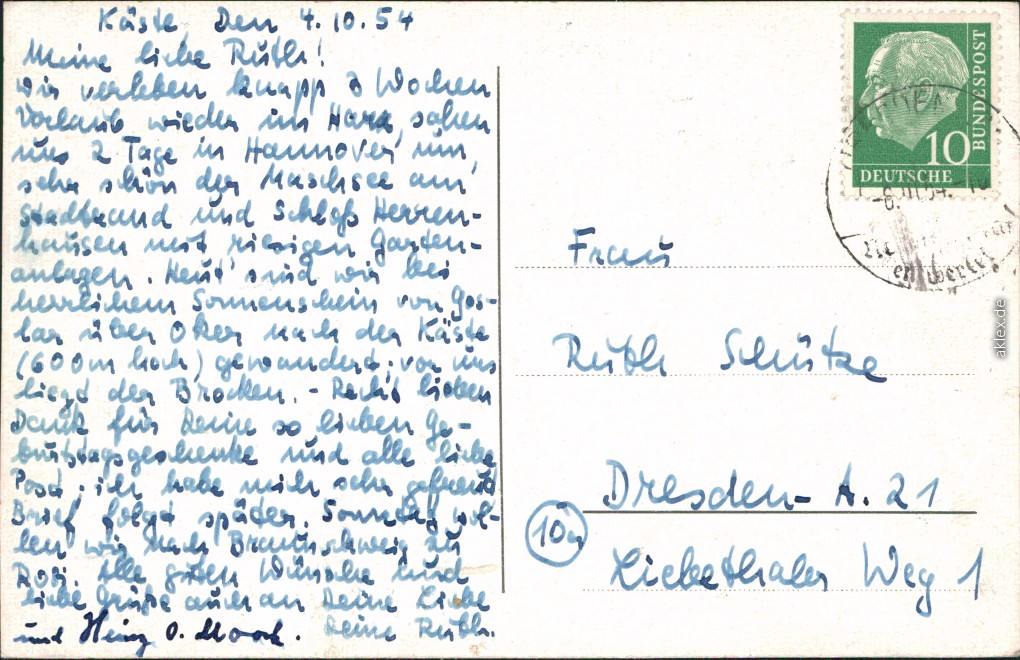 Käste, Den 4.10.54
Meine liebe Ruth!
wir verleben knapp 3 Wochen
Vorlaub wieder im Harz, sahen
uns 2 Tage in Hannover um,
sehr schön der Maschsee am
Stadtrand und Schloß Herren-
hausen mit riesigen Garten-
anlagen. Heut' sind wir bei
herrlichem Sonnenschein von Gos-
lar über Oker nach der Käste
(600m hoch) gewandert; vor uns
liegt der Brocken. - Recht lieben
Dank für Deine so lieben Ge-
burtstagsgeschenke und alle liebe
Post; ich habe mich sehr gefreut
Brief folgt später. Sonntag wol-
len wir nach Braunschweig zu
Rosi. Alle guten Wünsche und
liebe Grüße auch an Deine Liebe
und Heinz O. Deine Ruth.
DEUTSCHE BUNDESPOST
10
-6.10.54.
entwertet
Frau
Ruth Schütze
Dresden- A. 21
10a
Liebethaler Weg 1
aklex.de